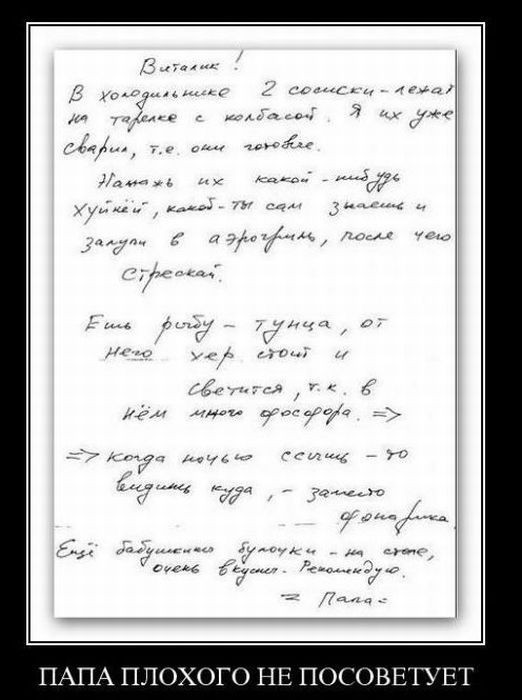 Виталик!
В холодильнике 2 сосиски - лежат
на тарелке с колбасой. Я их уже
сварил, т.е. они готовые.
Намажь их какой-нибудь
хуйнёй, какой-ты сам знаешь и
залупи в аэрогриль, после чего
стрескай.
Ешь рыбу - тунца, от
него хер стоит и
светится, т.к. в
нём много фосфора. =>
=> когда ночью ссышь - то
видишь куда, - заместо
фонарика
Ещё бабушкины булочки - на столе,
очень вкусные. Рекомендую.
= Папа =
ПАПА ПЛОХОГО НЕ ПОСОВЕТУЕТ